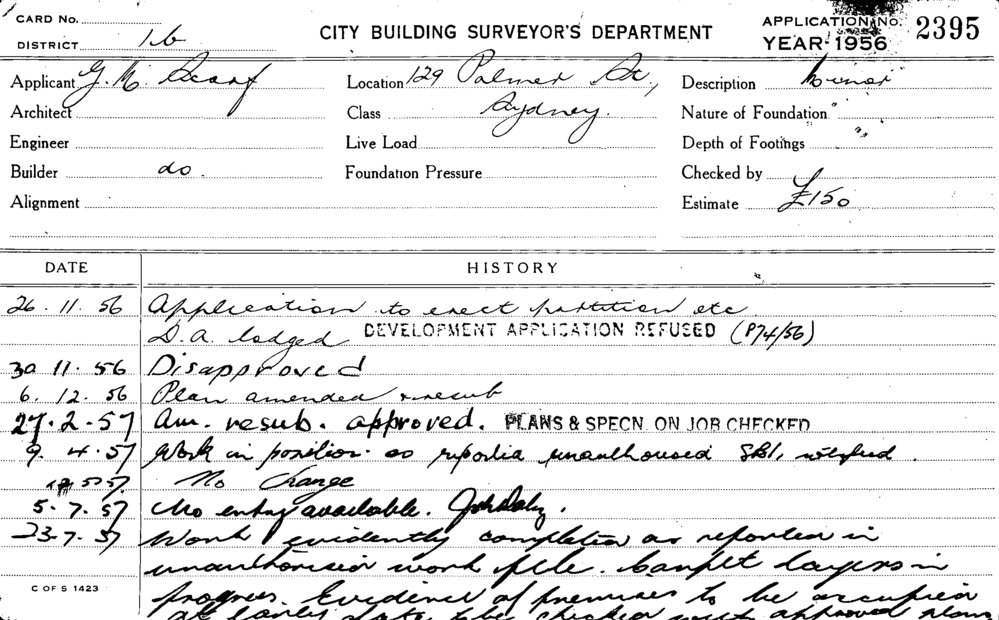 CARD No.
DISTRICT 1b
CITY BUILDING SURVEYOR'S DEPARTMENT
APPLICATION No. 2395
YEAR 1956
Applicant G. K. Scarf
Location 129 Palmer St.,
Description Minor
Architect
Class Sydney.
Nature of Foundation "
Engineer
Live Load
Depth of Footings "
Builder do.
Foundation Pressure
Checked by
Alignment
Estimate £150
DATE HISTORY
26. 11. 56 Application to erect partition etc
D.A. lodged DEVELOPMENT APPLICATION REFUSED (874/56)
30 11. 56 Disapproved
6. 12. 56 Plan amended & resub
27. 2. 57 Am. resub. approved. PLANS & SPECN. ON JOB CHECKED
9. 4. 57 Work in position as reported unauthorised
57. No Change
5. 7. 57 No entry available.
23. 7. 57 Work evidently completed as reported in
unauthorised work file. Carpet layers in
C OF S 1423
progress. Evidence of premises to be occupied
at early date to be checked with approved plans